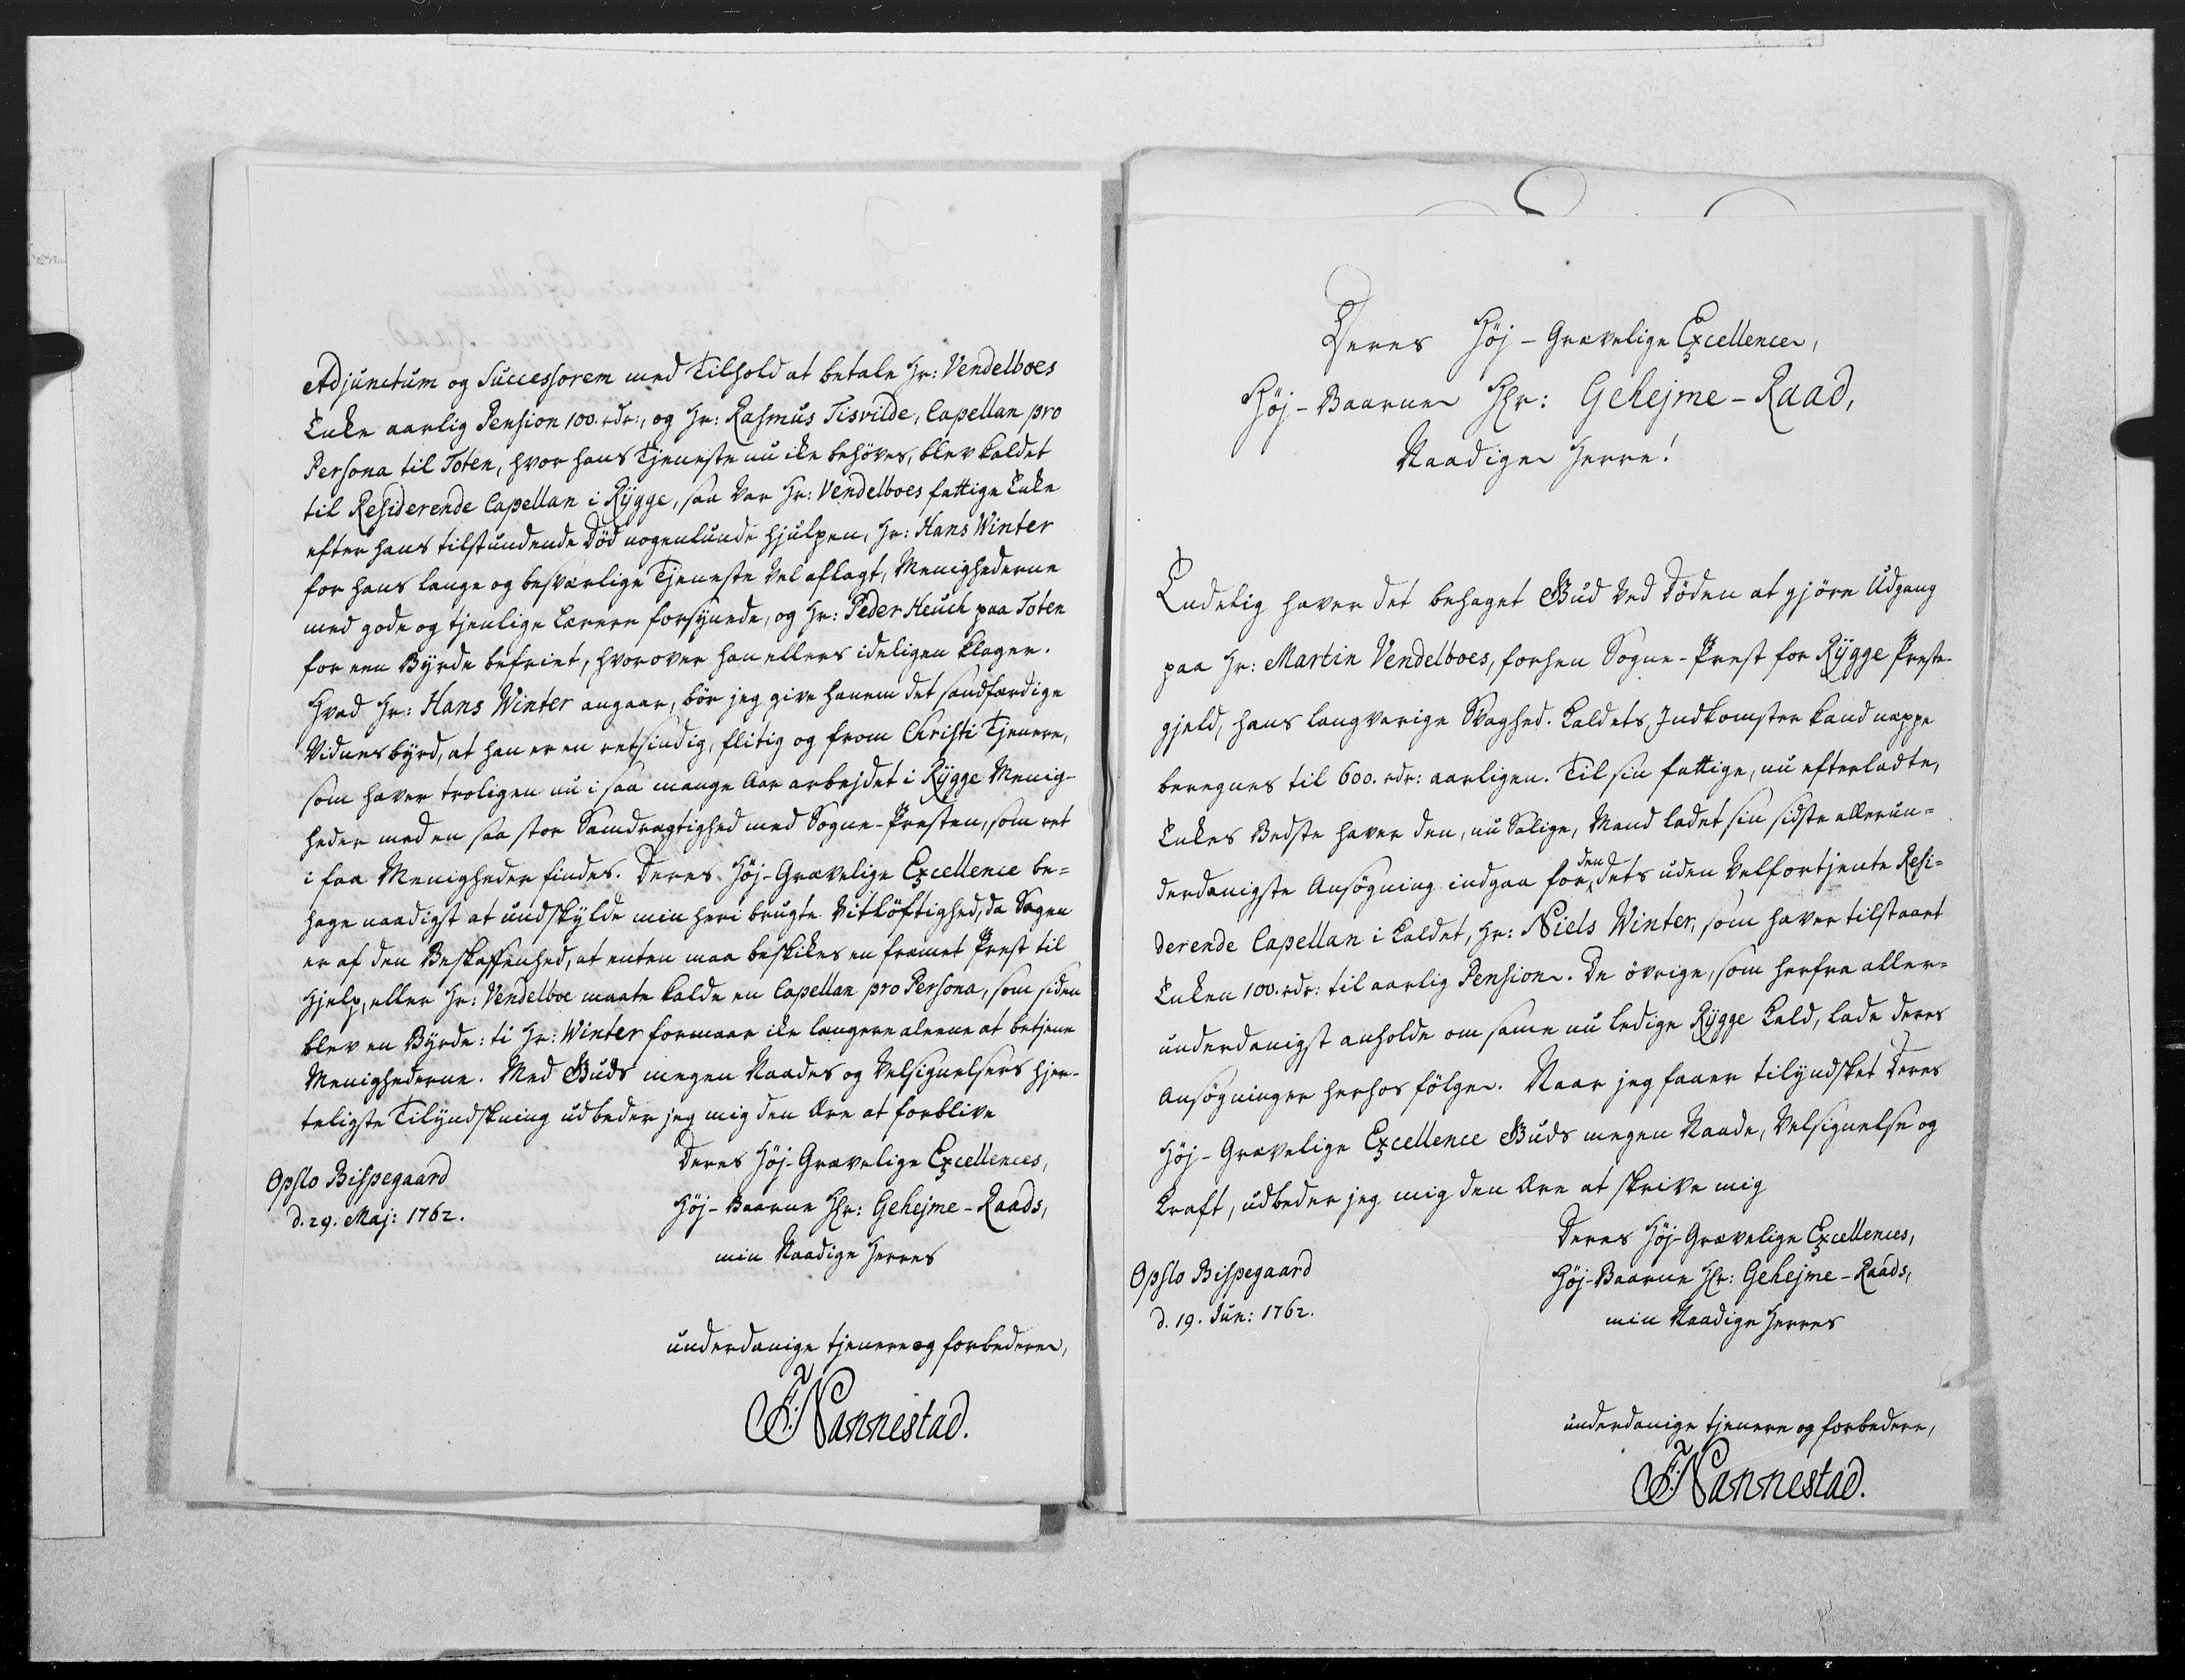 Adjunctum og Successorem med Tilhold at betale Hr: Vendelboes
Enke aarlig Pension 100. rdr:, og Hr: Rasmus Tisvilde, Capellan pro
Persona til Toten, hvor hans Tjeneste nu ike behöves, blev kaldet
til Residerende Capellan i Rygge, saa var Hr: Vendelboes fattige Enke
efter hans tilstundende Död nogenlunde hjulpen, Hr: Hans Winter
for hans lange og besværlige Tjeneste vel aflagt, Menighederne
med gode og tjenlige Lærere forsynede, og Hr: Peder Heuch paa Toten
for een Byrde befriet, hvorover han ellers ideligen klager.
Hvad Hr: Hans Winter angaar, bör jeg give hanem det sandfærdige
Vidnesbyrd, at han er en retsindig, flitig og from Christi Tjenere,
som haver troligen nu i saa mange Aar arbejdet i Rygge Menig-
heder med en saa stor Samdrægtighed med Sogne-Præsten, som ret
i faa Menigheder findes. Deres Höj-Grævelige Excellence be=
hage naadigst at undskylde min heri brugte Vitlöftighed, da Sagen
er af den Beskaffenhed, at enten maa beskikes en fræmet Præst til
Hjelp, eller Hr: Vendelboe maate kalde en Capellan pro Persona, som siden
blev en Byrde: ti Hr: Winter formaar ike længere aleene at betjene
Menighederne. Med Guds megen Naades og Velsignelsers hjer-
teligste Tilyndskning udbeder jeg mig den Ære at forblive
Deres Höj-Grævelige Excellences,
Höj-Baarne Hr: Gehejme-Raads,
min Naadige Herres
Opslo Bispegaard
d. 29. Maj: 1762.
underdanige tjenere og forbedere,
F: Nannestad.
Deres Höj-Grævelige Excellence,
Höj-Baarne Hr: Gehejme-Raad,
Naadige Herre!
Endelig haver det behaget Gud ved Döden at gjöre Udgang
paa Hr: Martin Vendelboes, forhen Sogne-Præst for Rygge Præste-
gjeld, hans langvarige Svaghed. Kaldets Indkomster kand næppe
beregnes til 600. rdr: aarligen. Til sin fattige, nu efterladte,
Enkes Bedste haver den, nu Salige, Mand ladet sin sidste allerun=
derdanigste Ansögning indgaa for den dets uden velfortjente Resi=
derende Capellan i Kaldet, Hr: Niels Winter, som haver tilstaaet
Enken 100. rdr: til aarlig Pension. De övrige, som herfra aller=
underdanigst anholde om same nu ledige Rygge Kald, lade deres
Ansögninger herhos fölge. Naar jeg faaer tilyndsket Deres
Höj-Grævelige Excellence Guds megen Naade, Velsignelse og
Kraft, udbeder jeg mig den Ære at skrive mig
Deres Höj-Grævelige Excellences,
Höj-Baarne Hr: Gehejme-Raads,
min Naadige Herres
Opslo Bispegaard
d. 19. Jun: 1762.
underdanige tjenere og forbedere,
F: Nannestad.